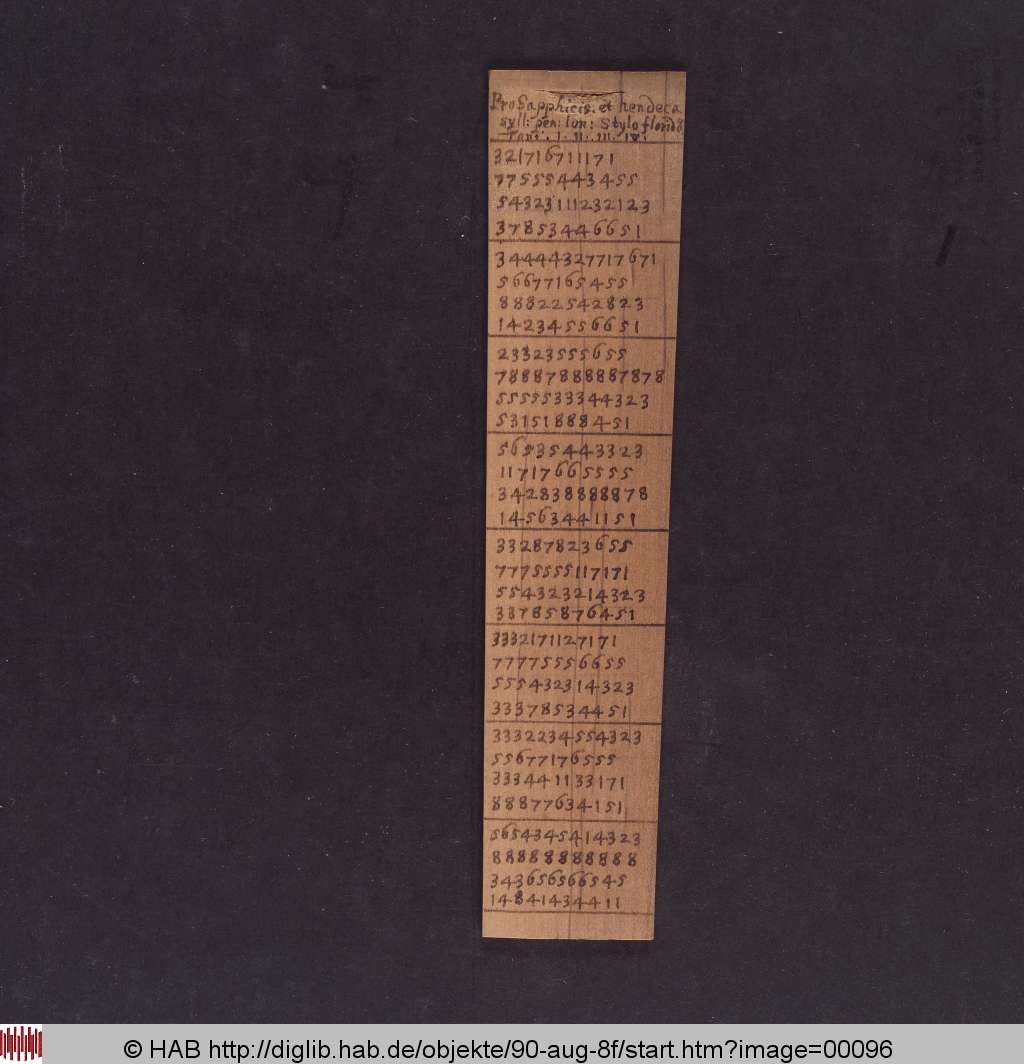 Pro Sapphicis. et hendeca
syll: pen: lon: Stylo florido
Toni. I. II. III. IV.
32171671171
77555443455
54323111232123
37853446651
3444432771767 1
56677165455
888225428 23
14234556651
23323555655
7888788888 7878
5555533344323
53151888451
565354433 23
11717665555
342838888878
14563441151
33287823655
77755551 17171
554323214323
33785876451
333217112 7171
77775556655
55543231 4323
33378534451
333223455 4323
556771765 55
33344113 3171
88877634151
5654345414323
88888888888
343656566545
14841434411